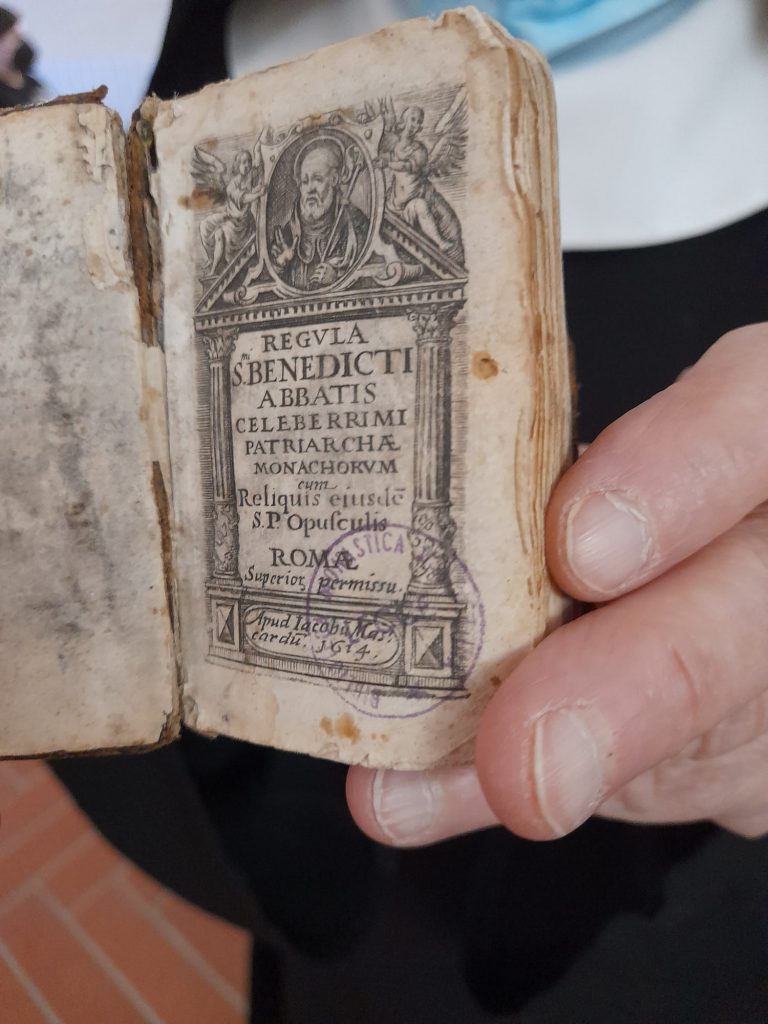 REGVLA
S.mi BENEDICTI
ABBATIS
CELEBERRIMI
PATRIARCHÆ
MONACHORVM
cum
Reliquis eiusdē
S.P. Opusculis
ROMÆ
Superiorꝫ permissu.
Apud Iacobū Mas
cardū. 1614.